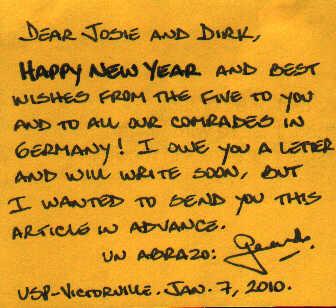 DEAR JOSIE AND DIRK,
HAPPY NEW YEAR AND BEST
WISHES FROM THE FIVE TO YOU
AND TO ALL OUR COMRADES IN
GERMANY! I OWE YOU A LETTER
AND WILL WRITE SOON, BUT
I WANTED TO SEND YOU THIS
ARTICLE IN ADVANCE.
UN ABRAZO: Gerardo
USP-VICTORVILLE. JAN. 7, 2010.